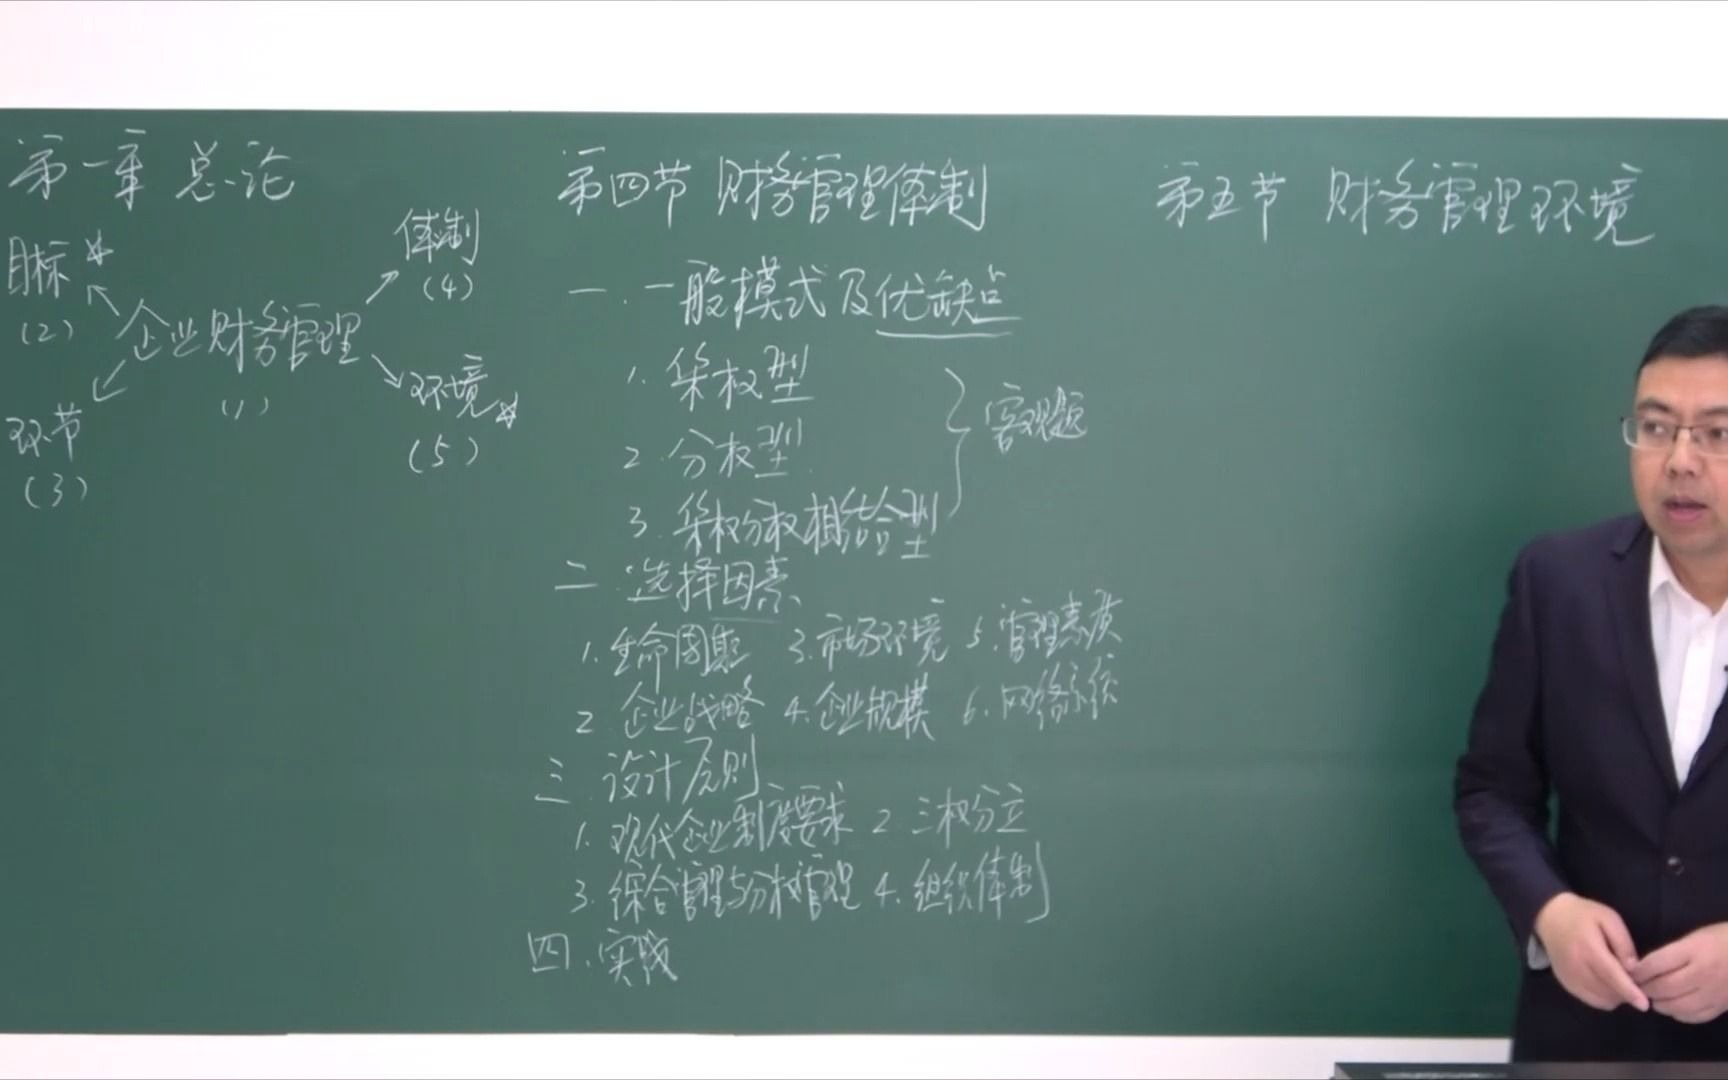 第一章 总论
目标☆
体制
(2)
(4)
企业财务管理
(1)
环节
环境☆
(3)
(5)
第四节 财务管理体制
一.一般模式及优缺点
1.集权型
2.分权型
3.集权分权相结合型
客观题
二.选择因素
1.生命周期 3.市场环境 5.管理素质
2.企业战略 4.企业规模 6.网络系统
三.设计原则
1.现代企业制度要求 2.三权分立
3.综合管理与分权管理 4.组织体制
四.实践
第五节 财务管理环境